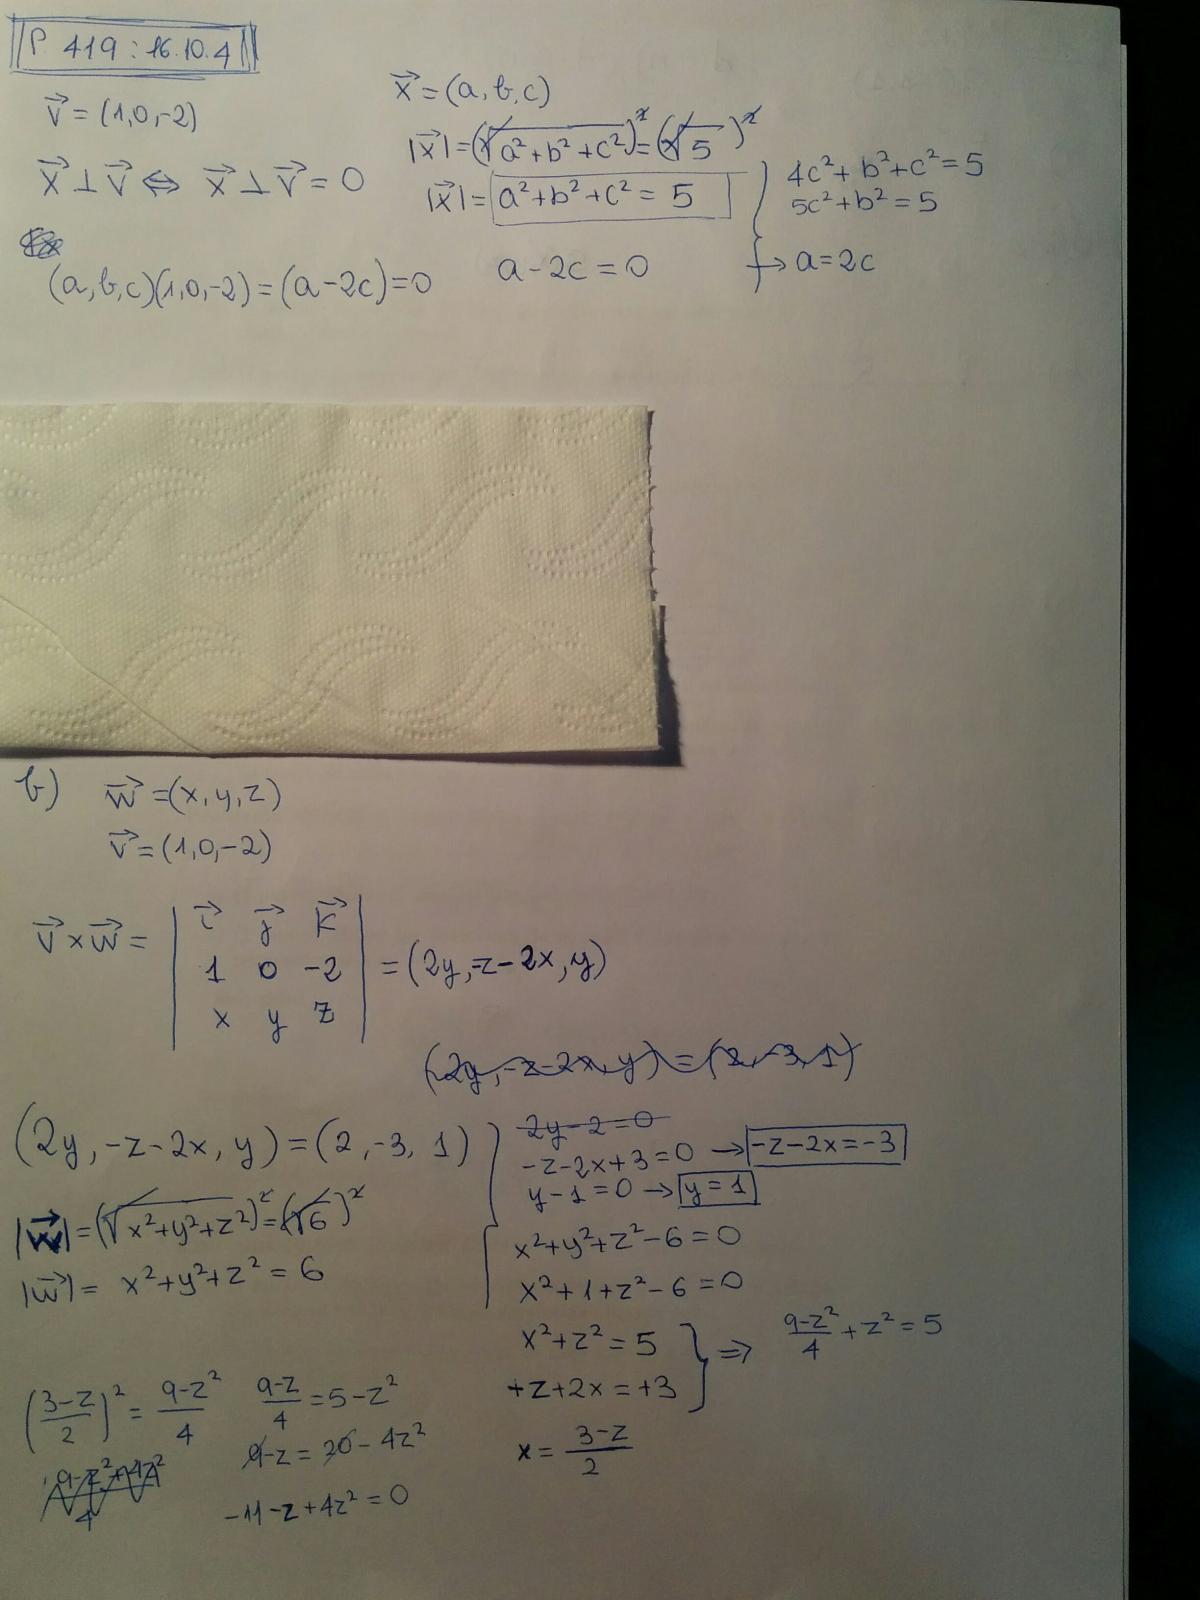 P 419 : 16.10.4
v⃗ = (1,0,-2)
x⃗ ⊥ v⃗ ⇔ x⃗ ⊥ v⃗ = 0
(a,b,c)(1,0,-2) = (a-2c) = 0
x⃗ = (a,b,c)
|x⃗| = (√a²+b²+c²)² = (√5)²
|x⃗| = a²+b²+c² = 5
a-2c = 0
4c²+b²+c² = 5
5c²+b² = 5
→ a = 2c
b) w⃗ = (x,y,z)
v⃗ = (1,0,-2)
v⃗ × w⃗ =
i⃗ j⃗ k⃗
1 0 -2
x y z
= (2y,-z-2x,y)
(2y,-z-2x,y) = (2,-3,1)
(2y,-z-2x,y) = (2,-3,1)
|w⃗| = (√x²+y²+z²)² = (√6)²
|w⃗| = x²+y²+z² = 6
2y-2=0
-z-2x+3=0 → -z-2x=-3
y-1=0 → y=1
x²+y²+z²-6=0
x²+1+z²-6=0
x²+z²=5
+z+2x=+3
x = (3-z)/2
⇒ (9-z²)/4 + z² = 5
((3-z)/2)² = (9-z²)/4
(9-z)/4 = 5-z²
9-z = 20-4z²
-11-z+4z² = 0